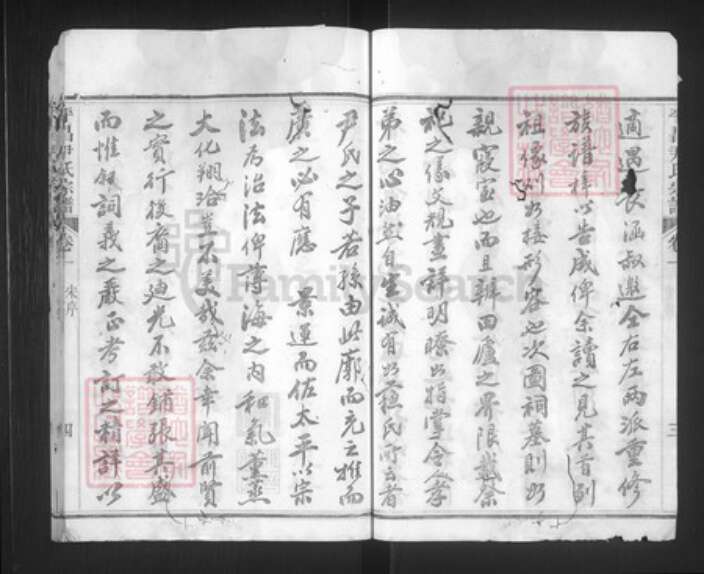 適遇長涵叔邀仝右左兩派重修
族譜梓以告成俾余讀之見其首刻
祖像則如接形容也次圖祠墓則如
親寢室也而且辨田廬之界限
祀之儀文規畫詳明瞭如指掌令人孝
弟之心油然自生誠有如蘇氏所云者
尹氏之子若孫由此廓而充之推而
廣之必有應 景運而佐太平以宗
法為治法俾薄海之內和氣薰蒸
大化翔洽豈不美哉茲余幸聞前賢
之實行後裔之迪光不敢鋪張其盛
而惟叙詞義之嚴正考訂之精詳以
尹氏宗譜
卷一
朱序
三
四
FamilySearch